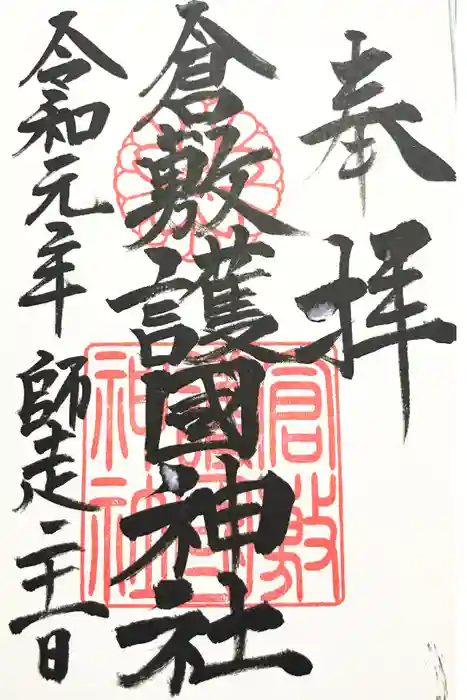 奉拝
倉敷護國神社
令和元年 師走二十一日
倉敷
護國
神社